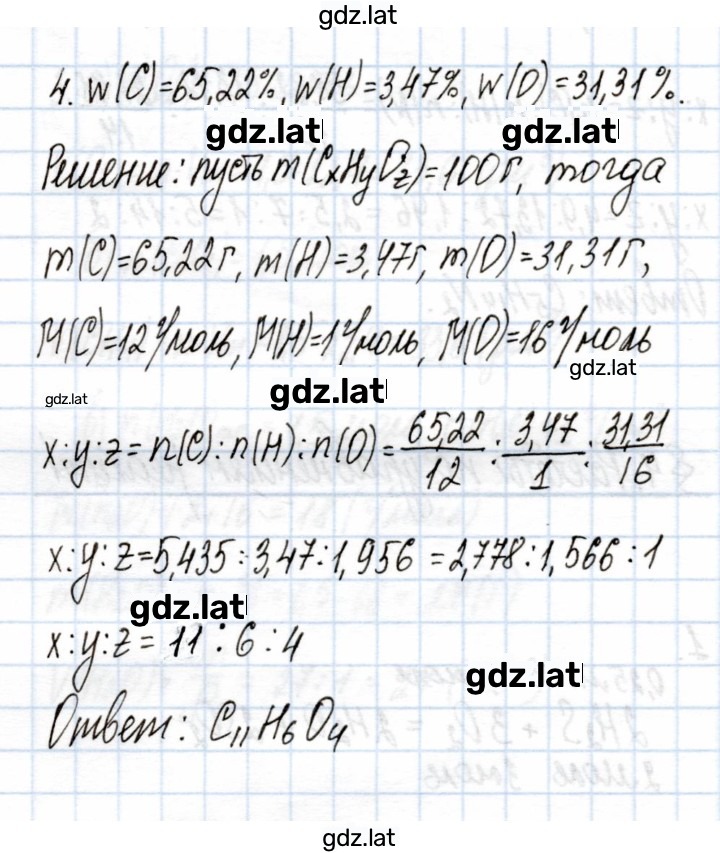 gdz.lat
4. w(C)=65,22%, w(H)=3,47%, w(O)=31,31%.
gdz.lat gdz.lat
Решение: пусть m(CxHyOz)=100г, тогда
m(C)=65,22г, m(H)=3,47г, m(O)=31,31г,
M(C)=12 г/моль, M(H)=1 г/моль, M(O)=16 г/моль
gdz.lat
gdz.lat gdz.lat
x:y:z=n(C):n(H):n(O)=65,22/12:3,47/1:31,31/16
x:y:z=5,435:3,47:1,956=2,778:1,566:1
gdz.lat
x:y:z=11:6:4
gdz.lat
Ответ: C₁₁H₆O₄
gdz.lat